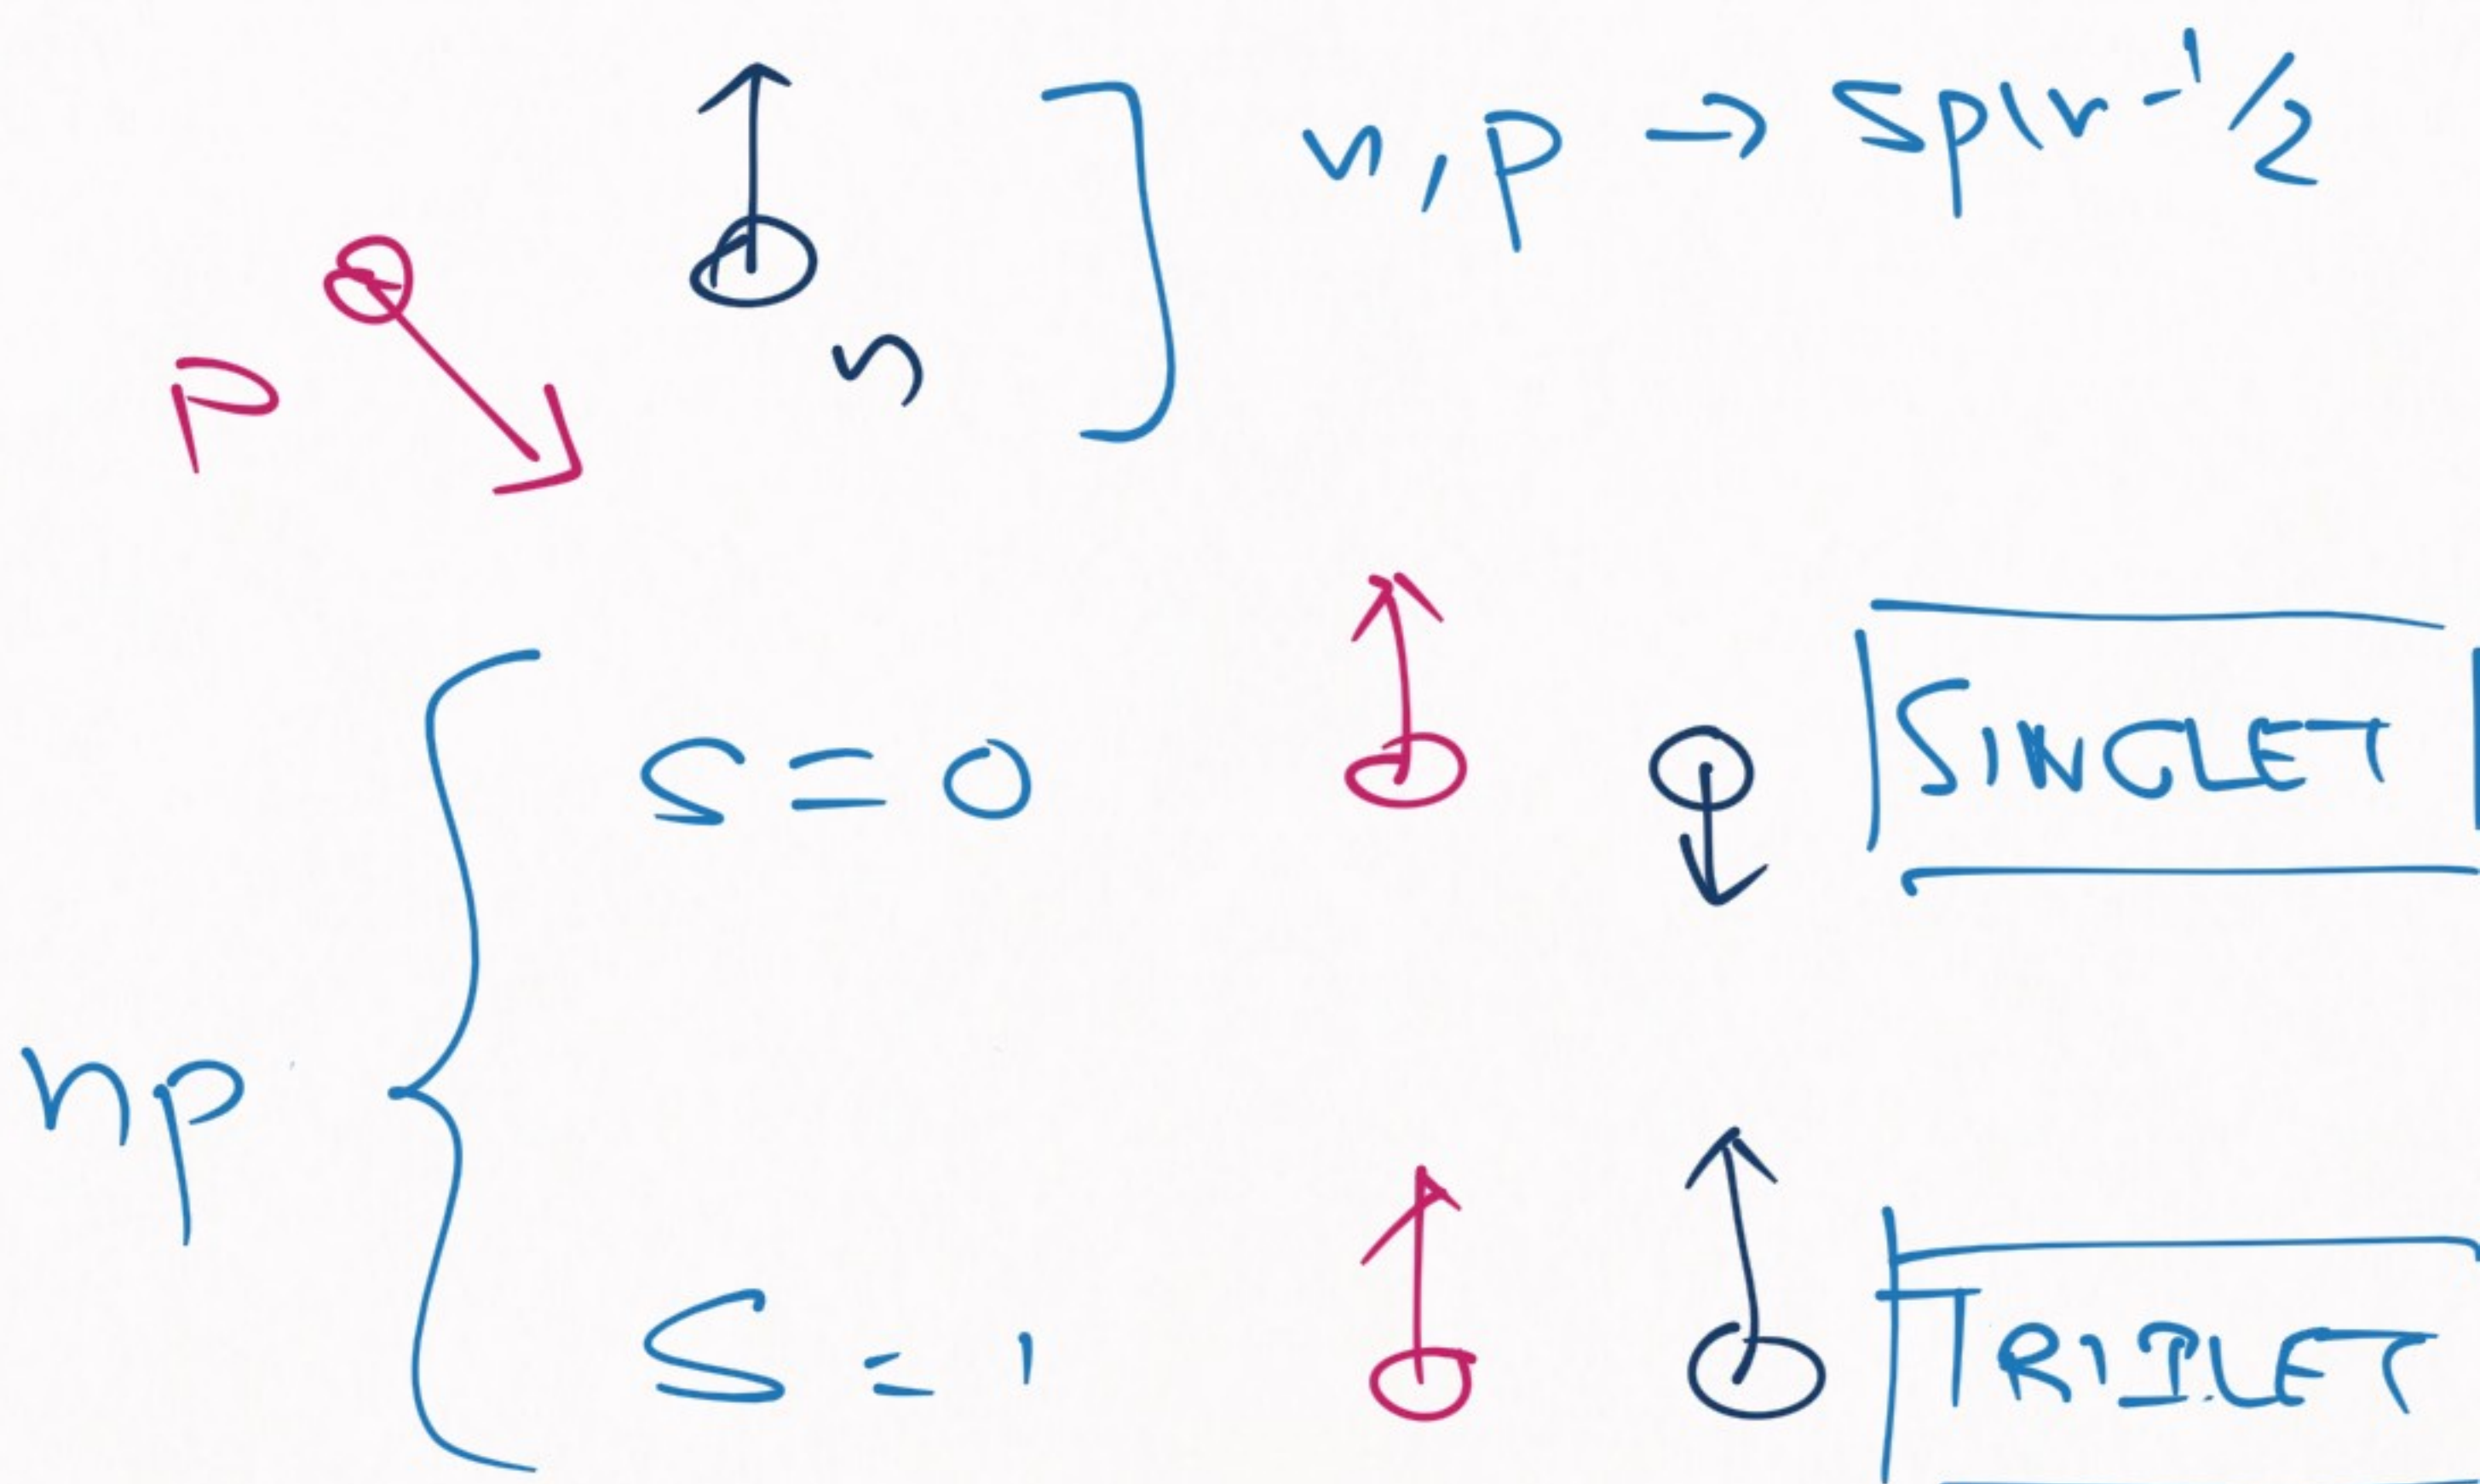 n, p → spin-1/2
p
n
S = 0
SINGLET
np
S = 1
TRIPLET